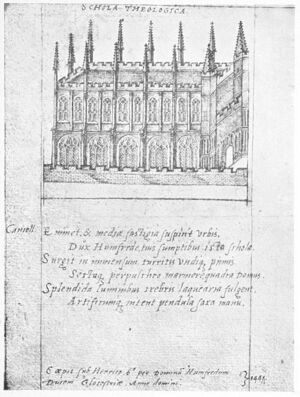 SCHOLA THEOLOGICA.
Cancell.
Eminet, & mediæ fastigia suspicit Vrbis,
Dux Humfrede, tuis sumptibus ista schola.
Surgit in immensum turritis undiq pinnis
Sectaq perpulchro marmore quadra domus.
Splendida luminibus crebris laquearia fulgent,
Artificumq nitent pendula saxa manu.
Cæpit sub Henrico 6º per Dominū Humfredum
Ducem Glocestriæ Anno domini.